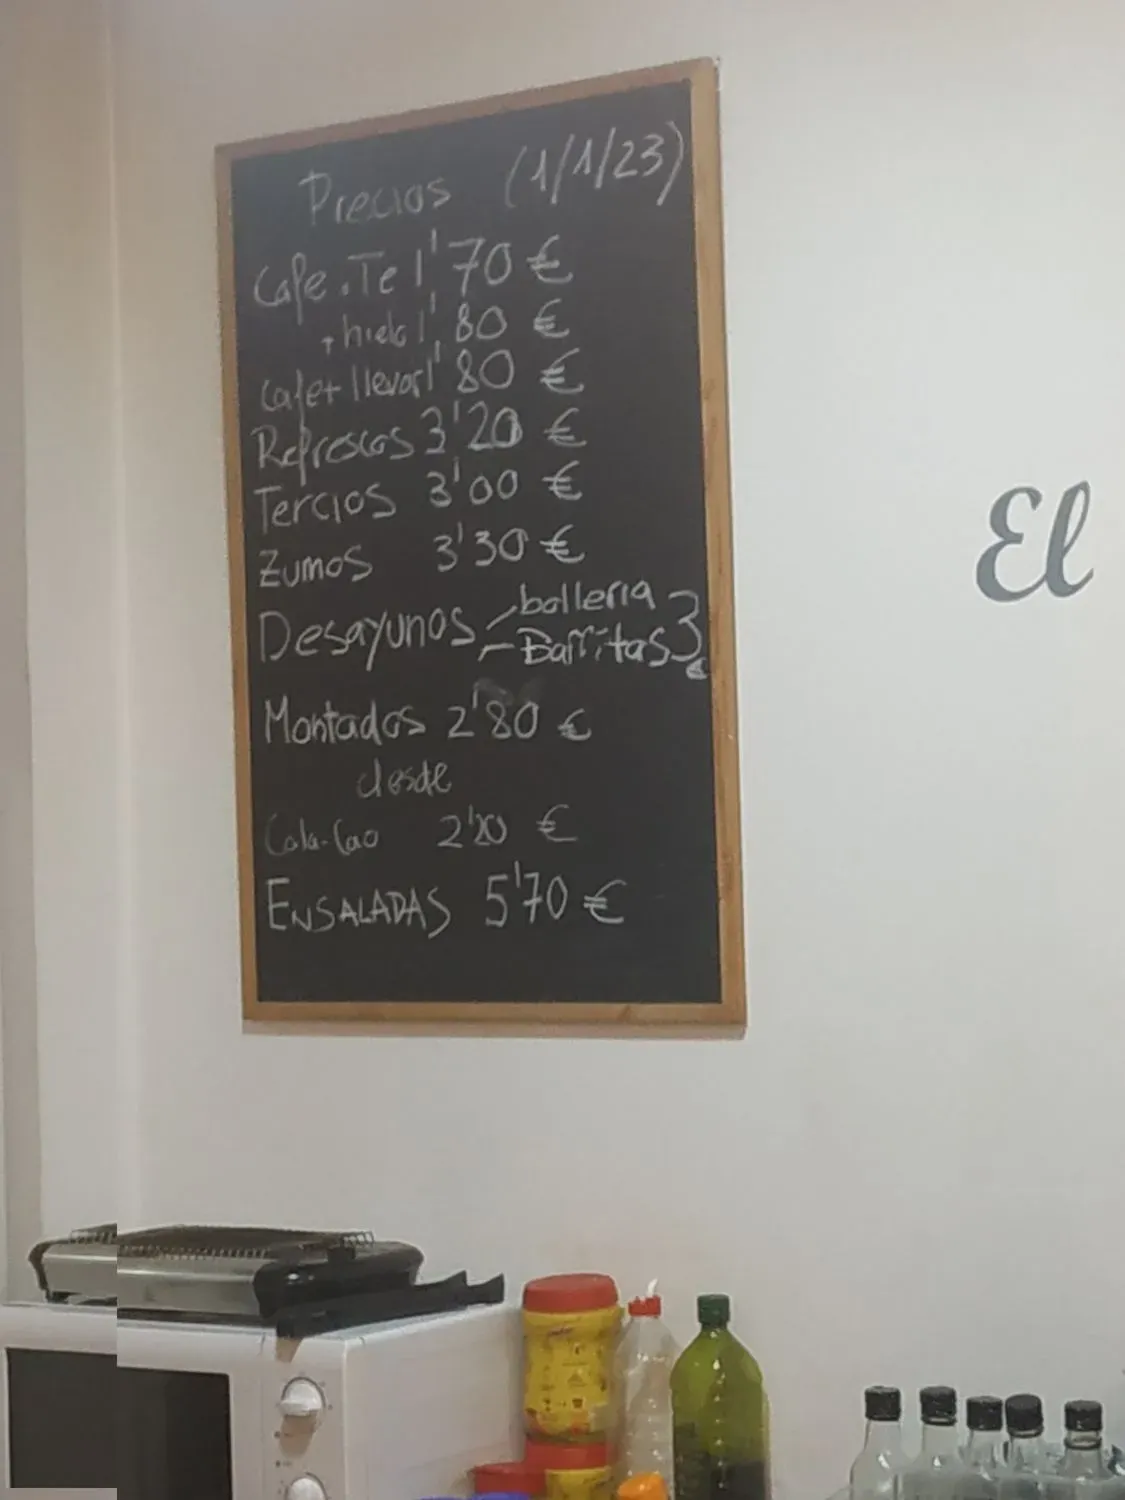 Precios (1/1/23)
Cafe. Te 1'70 €
+ hielo 1'80 €
Cafe + llevar 1'80 €
Refrescos 3'20 €
Tercios 3'00 €
Zumos 3'30 €
Desayunos bolleria
Barritas 3 €
Montados 2'80 €
desde
Cola-Cao 2'20 €
ENSALADAS 5'70 €
El